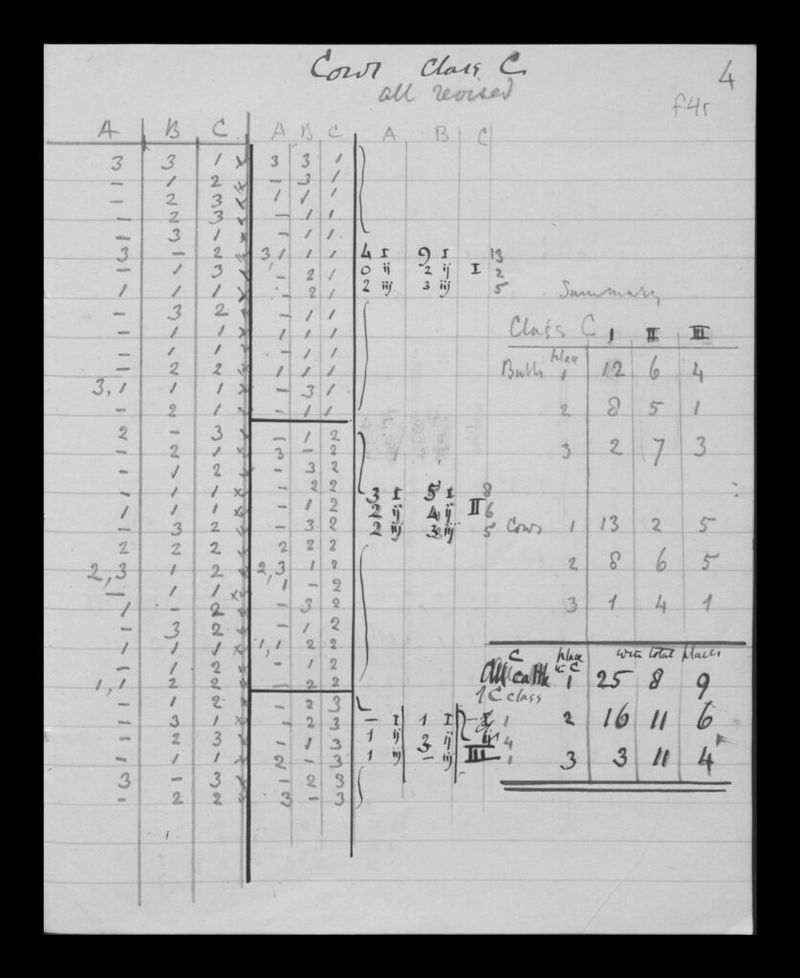 Cows Class C
all revised
4
f.4r
A B C A B C A B C
3 3 1 x 3 3 1
– 1 2 x – 3 1
– 2 3 x 1 1 1
– 2 3 x – 1 1
– 3 1 x – 1 1
3 – 2 x 3 1 1 1 4 I 9 I 13
– 1 3 x – 2 1 0 ij 2 ij I 2
1 1 1 x – 2 1 2 iij 3 iij 5
– 3 2 x – 1 1
– 1 1 x 1 1 1
– 1 1 x – 1 1
– 2 2 x 1 1 1
3,1 1 1 x – 3 1
– 2 1 x – 1 1
2 – 3 x – 1 2
– 2 1 x 3 – 2
– 1 2 x – 3 2
– 1 1 x – 2 2 3 I 5 I 8
1 1 1 x – 1 2 2 ij 4 ij II 6
– 3 2 x – 3 2 2 iij 3 iij 5
2 2 2 x 2 2 2
2,3 1 2 x 2,3 1 2
– 1 1 x 1 – 2
1 – 2 x – 3 2
– 3 2 x – 1 2
1 1 1 x 1,1 2 2
– 1 2 x – 1 2
1,1 2 2 x – 2 2
– 1 2 x – 2 3
– 3 1 x – 2 3 – I 1 I – I 1
– 2 3 x – 1 3 1 ij 3 ij ij 4
– 1 1 x 2 – 3 1 iij – iij III 1
3 – 3 x – 2 3
– 2 2 x 3 – 3
Summary
Class C I II III
Bulls place 1 12 6 4
2 8 5 1
3 2 7 3
Cows 1 13 2 5
2 8 6 5
3 1 4 1
C place in C with total places
All cattle 1 25 8 9
of C class
2 16 11 6
3 3 11 4